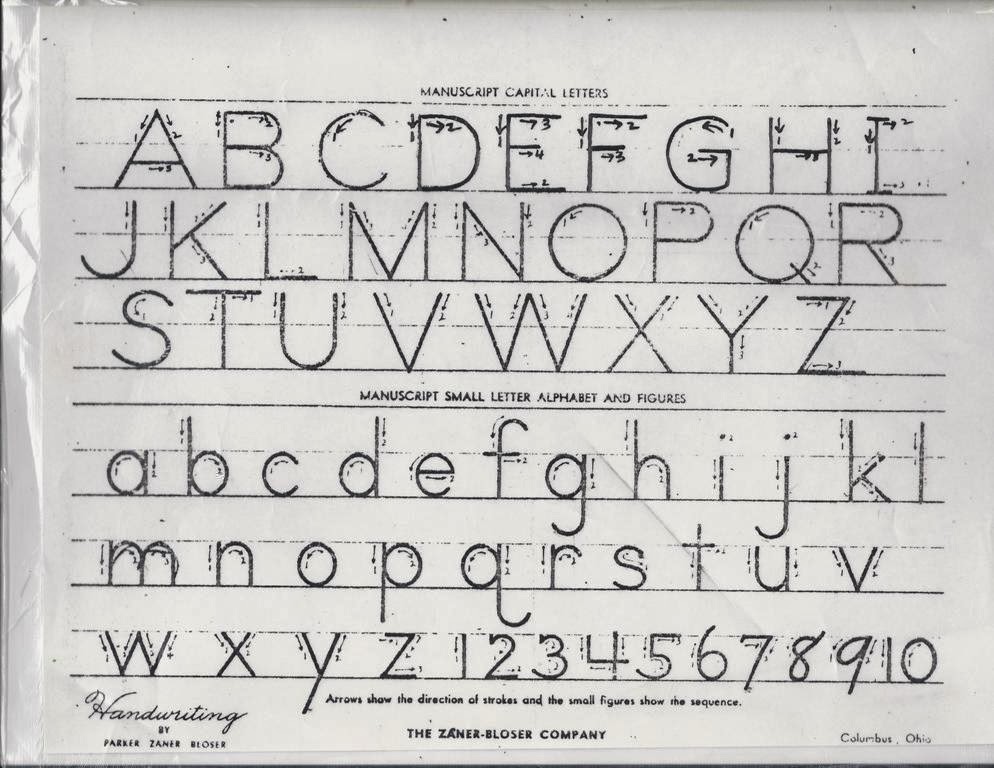 MANUSCRIPT CAPITAL LETTERS
A B C D E F G H I
J K L M N O P Q R
S T U V W X Y Z
MANUSCRIPT SMALL LETTER ALPHABET AND FIGURES
a b c d e f g h i j k l
m n o p q r s t u v
w x y z 1 2 3 4 5 6 7 8 9 10
Arrows show the direction of strokes and the small figures show the sequence.
Handwriting
BY
PARKER ZANER BLOSER
THE ZANER-BLOSER COMPANY
Columbus, Ohio